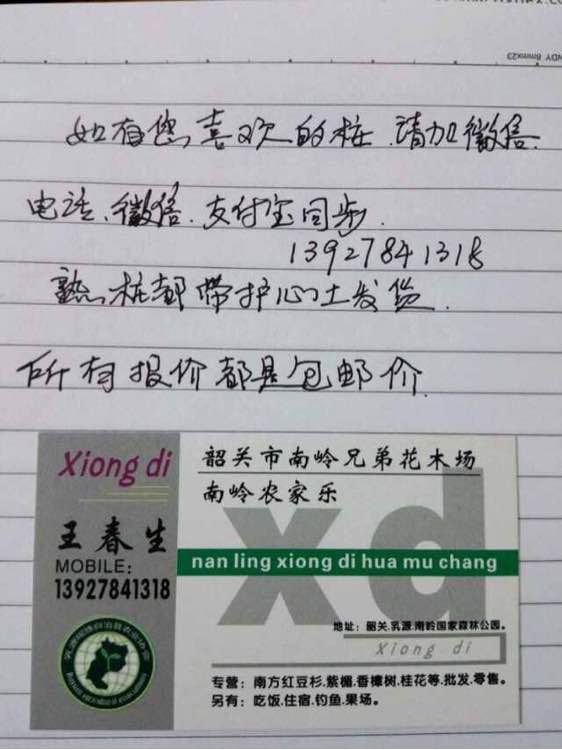 如有您喜欢的桩.请加微信.
电话、微信.支付宝同步.
13927841318
熟桩都带护心土发货.
所有报价都是包邮价.
Xiong di
韶关市南岭兄弟花木场
南岭农家乐
xd
王春生
nan ling xiong di hua mu chang
MOBILE:
13927841318
地址：韶关.乳源.南岭国家森林公园。
Xiong di
专营：南方红豆杉.紫楠.香樟树.桂花等.批发.零售。
另有：吃饭.住宿.钓鱼.果场。